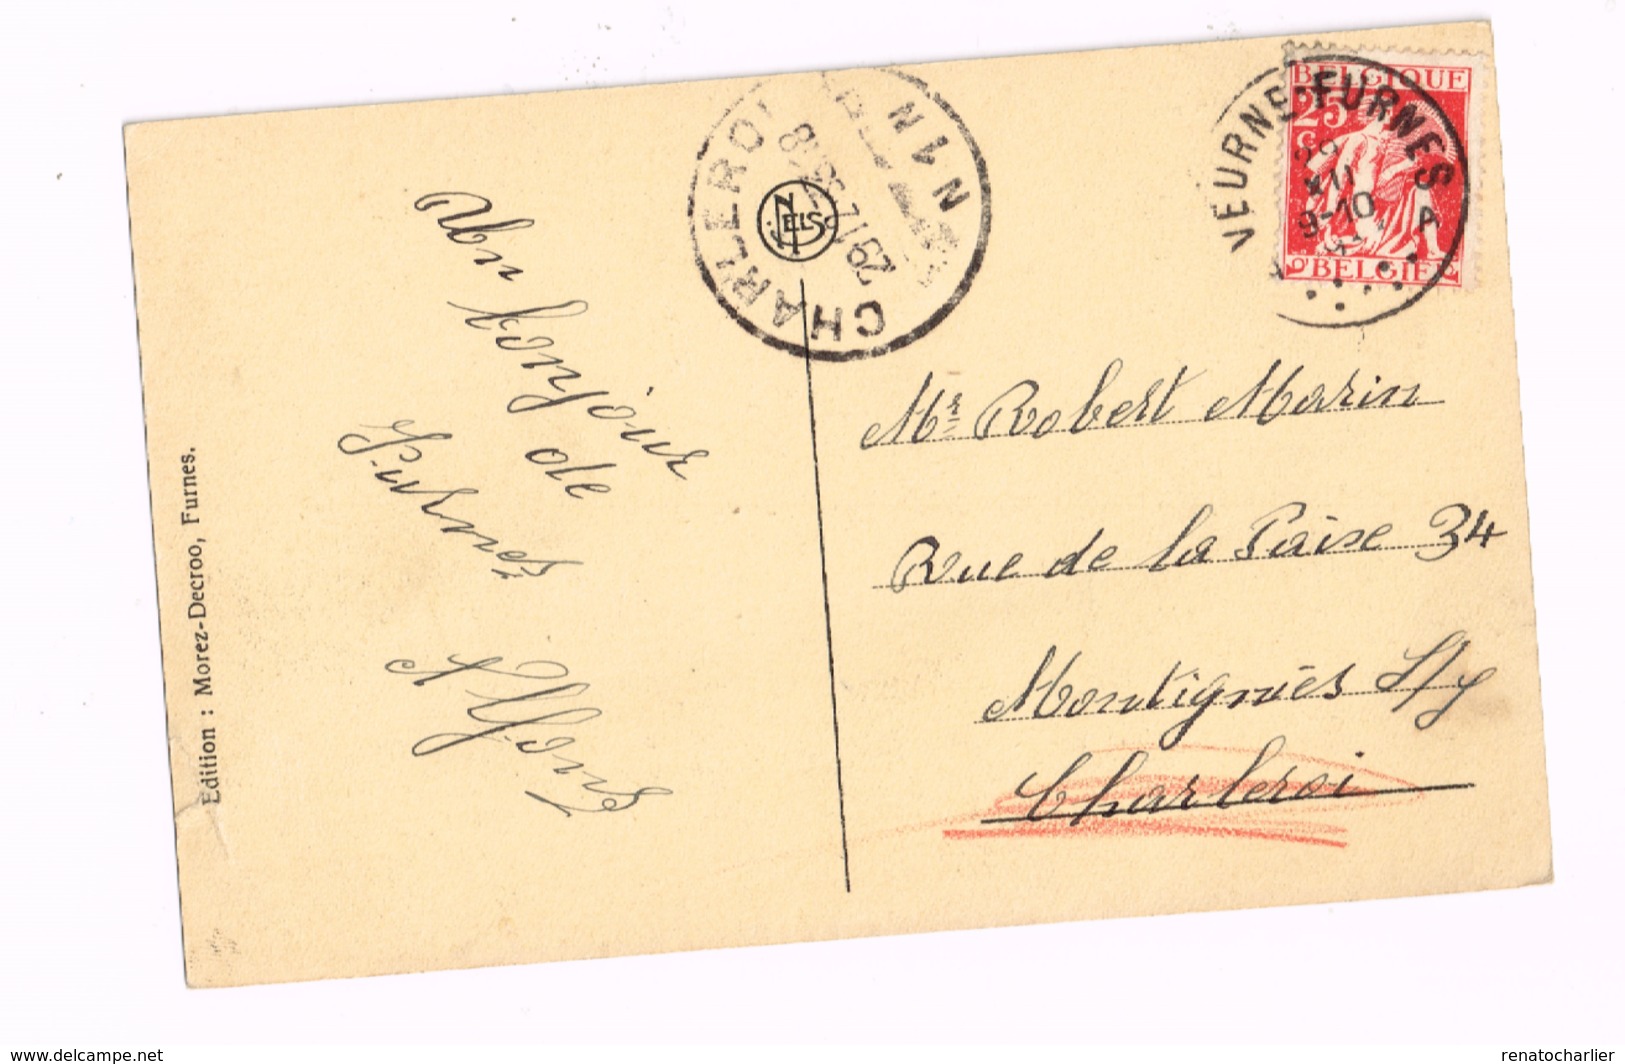 Un bonjour
de
Furnes
Alfons
Edition : Morez-Decroo, Furnes.
CHARLEROI
NELS
VEURNE-FURNES
A
9-10
BELGIQUE
25
C
BELGIË
Mr Robert Marin
Rue de la Paise 34
Montigniés S/y
Charleroi
renatocharlier
www.delcampe.net